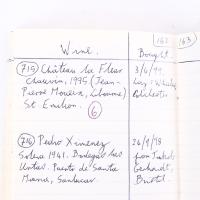 162 163
Wine. Bought.
715 Château la Fleur 3/6/99
Chauvin, 1995 (Jean- Lay & Wheeler,
Pierre Moueix, Libourne) Colchester
St Emilion.
6
716 Pedro Ximenez 24/9/98
Solera 1941. Bodegas
Puerto de Santa
Gerhardt,
Bristol.